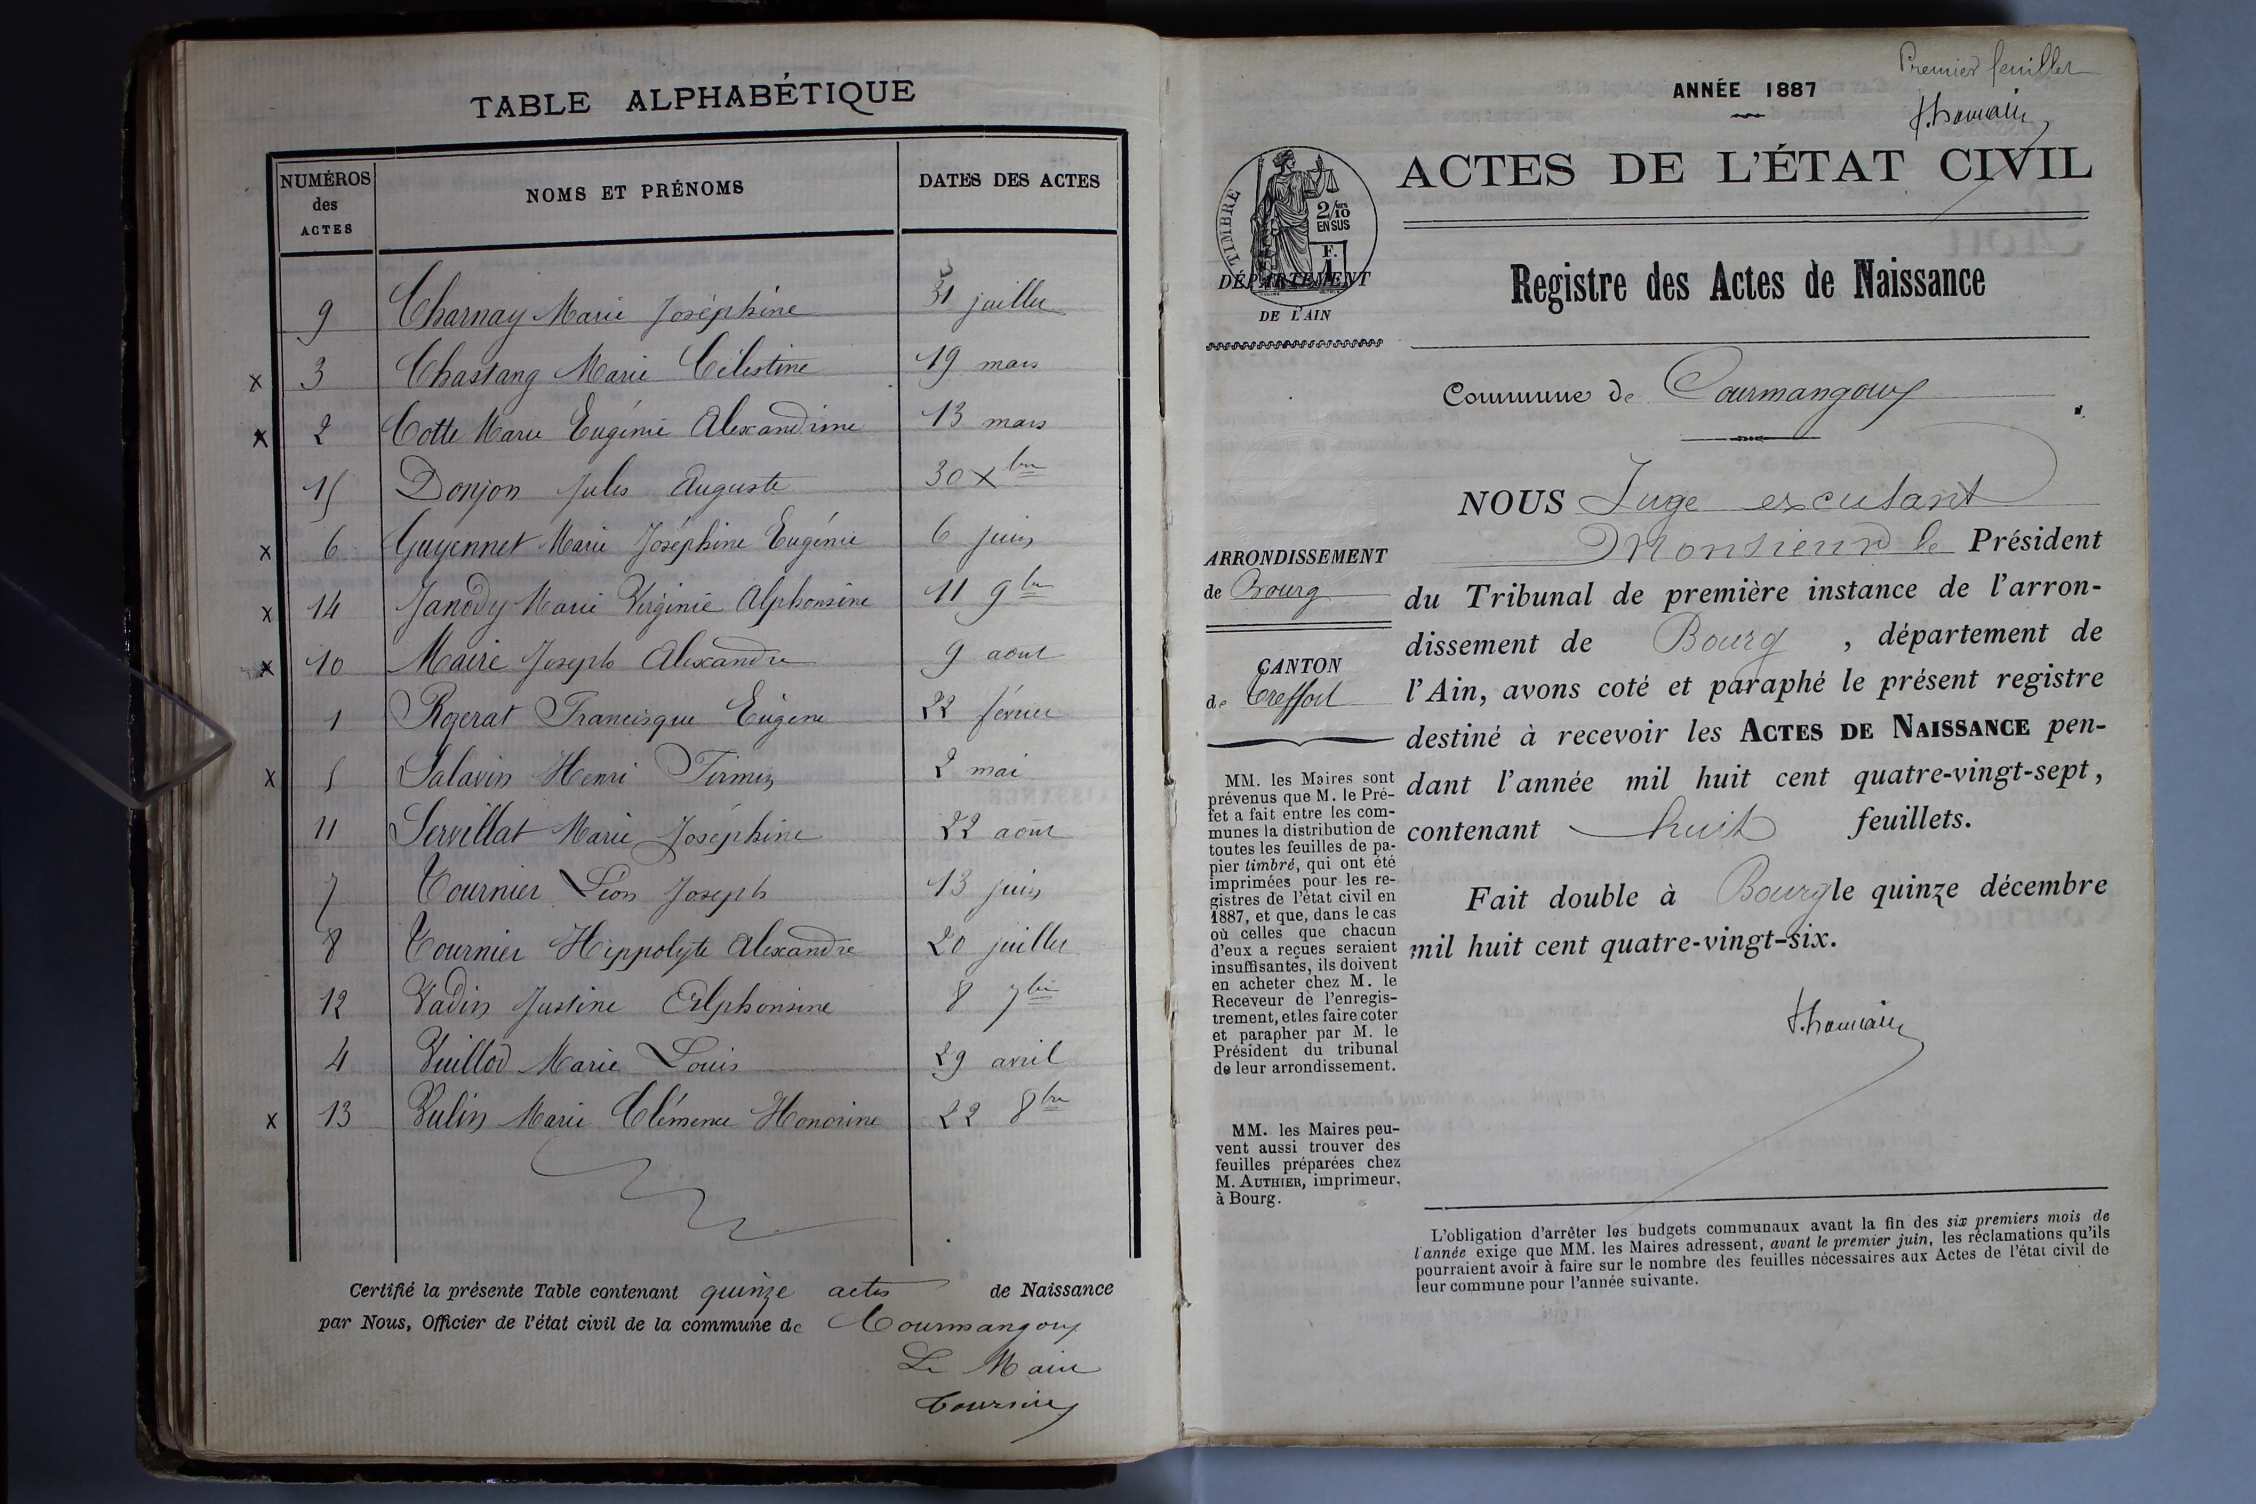 TABLE ALPHABÉTIQUE
NUMÉROS des ACTES NOMS ET PRÉNOMS DATES DES ACTES
9 Charnay Marie Joséphine 31 juillet
x 3 Chastang Marie Célestine 19 mars
x 2 Cotte Marie Eugénie Alexandrine 13 mars
15 Donjon Jules Auguste 30 Xbre
x 6 Guyennet Marie Joséphine Eugénie 6 juin
x 14 Janody Marie Virginie Alphonsine 11 9bre
x 10 Maire Joseph Alexandre 9 aout
1 Rozerat Francisque Eugène 22 février
x 5 Salavin Henri Firmin 2 mai
11 Servillat Marie Joséphine 22 août
7 Tournier Léon Joseph 13 juin
8 Tournier Hippolyte Alexandre 20 juillet
12 Vadin Justine Alphonsine 8 7bre
4 Vuillod Marie Louis 29 avril
x 13 Vulin Marie Clémence Honorine 22 8bre
Certifié la présente Table contenant quinze actes de Naissance
par Nous, Officier de l'état civil de la commune de Courmangoux
Le Maire
Tournier
Premier feuillet
ANNÉE 1887
ACTES DE L'ÉTAT CIVIL
TIMBRE
2/10 EN SUS
F. 1
DÉPARTEMENT
DE L'AIN
Registre des Actes de Naissance
Commune de Courmangoux
ARRONDISSEMENT
de Bourg
CANTON
de Treffort
MM. les Maires sont
prévenus que M. le Pré-
fet a fait entre les com-
munes la distribution de
toutes les feuilles de pa-
pier timbré, qui ont été
imprimées pour les re-
gistres de l'état civil en
1887, et que, dans le cas
où celles que chacun
d'eux a reçues seraient
insuffisantes, ils doivent
en acheter chez M. le
Receveur de l'enregis-
trement, et les faire coter
et parapher par M. le
Président du tribunal
de leur arrondissement.
MM. les Maires peu-
vent aussi trouver des
feuilles préparées chez
M. AUTHIER, imprimeur,
à Bourg.
NOUS Juge excusant
Monsieur le Président
du Tribunal de première instance de l'arron-
dissement de Bourg, département de
l'Ain, avons coté et paraphé le présent registre
destiné à recevoir les ACTES DE NAISSANCE pen-
dant l'année mil huit cent quatre-vingt-sept,
contenant huit feuillets.
Fait double à Bourg le quinze décembre
mil huit cent quatre-vingt-six.
L'obligation d'arrêter les budgets communaux avant la fin des six premiers mois de
l'année exige que MM. les Maires adressent, avant le premier juin, les réclamations qu'ils
pourraient avoir à faire sur le nombre des feuilles nécessaires aux Actes de l'état civil de
leur commune pour l'année suivante.